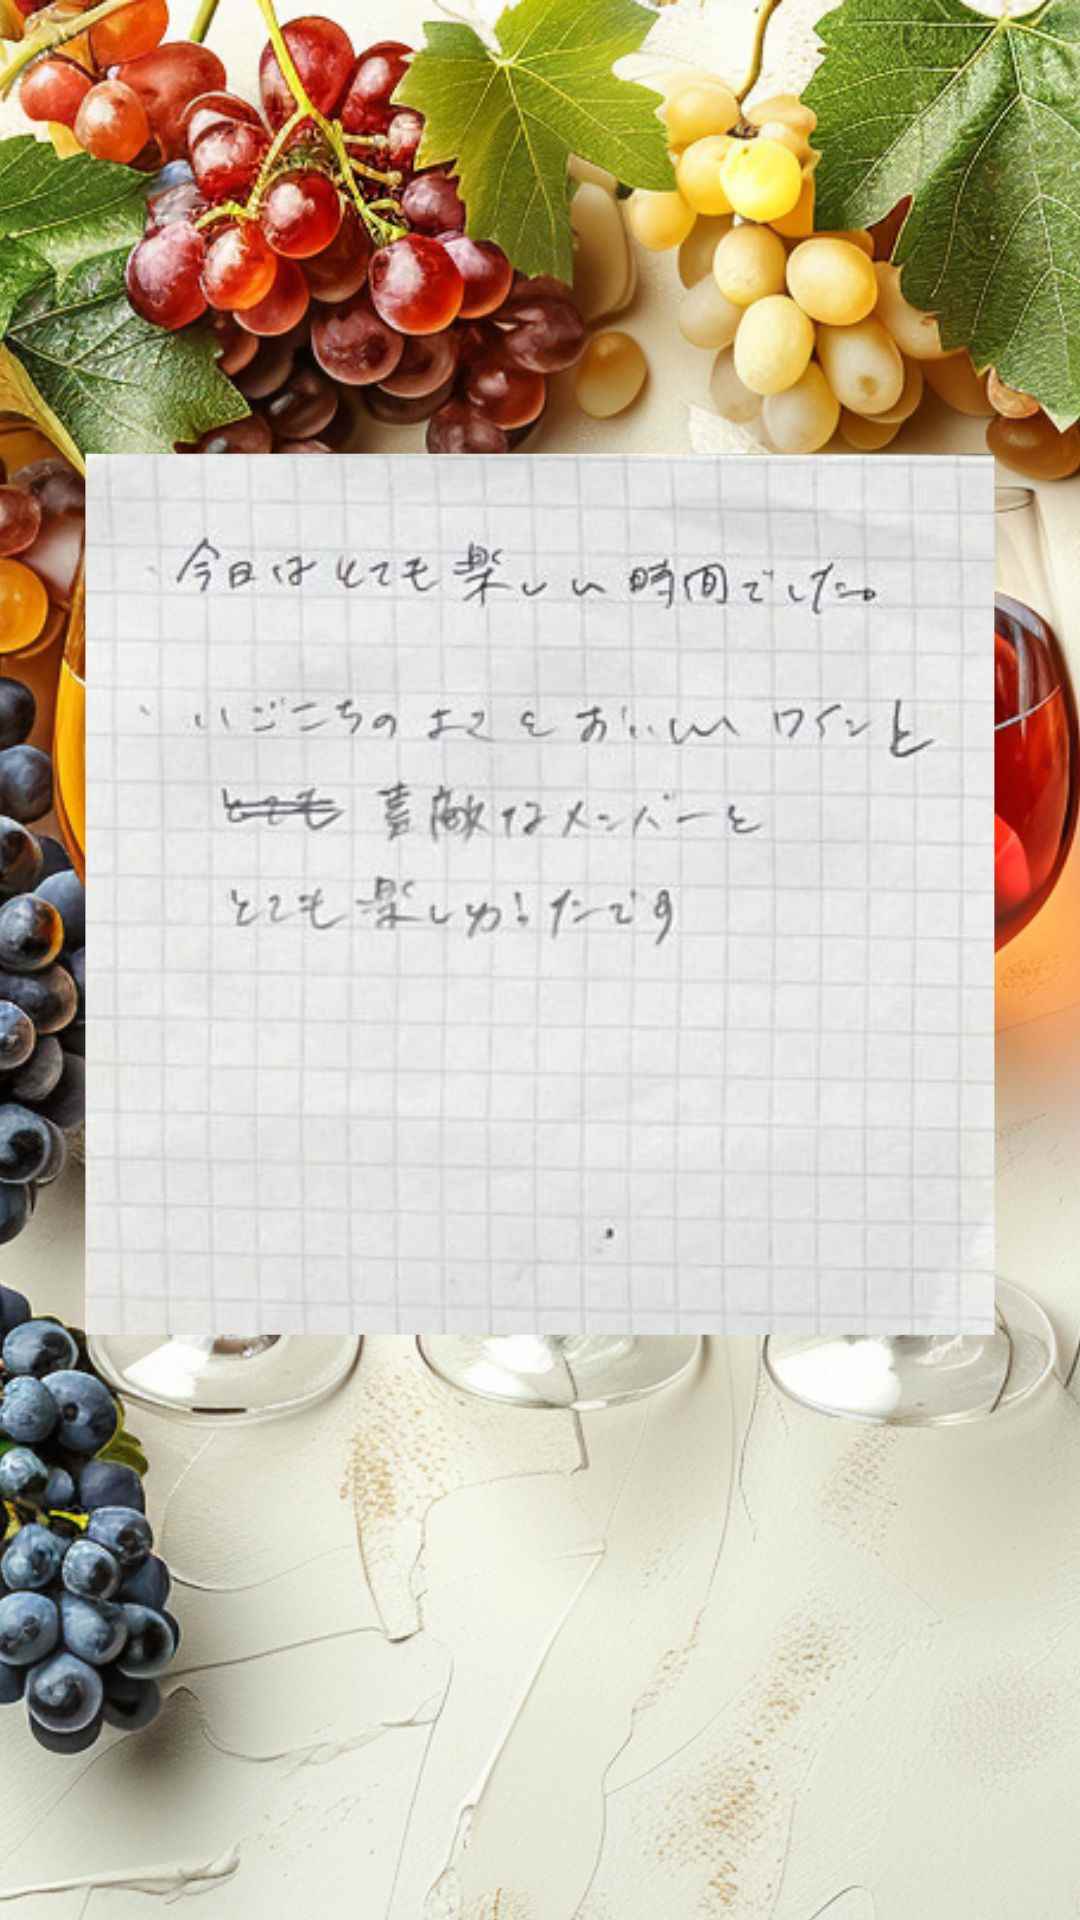 ・今日はとても楽しい時間でした。
・いごこちのよさとおいしいワインと
とても 素敵なメンバーと
とても楽しかったです